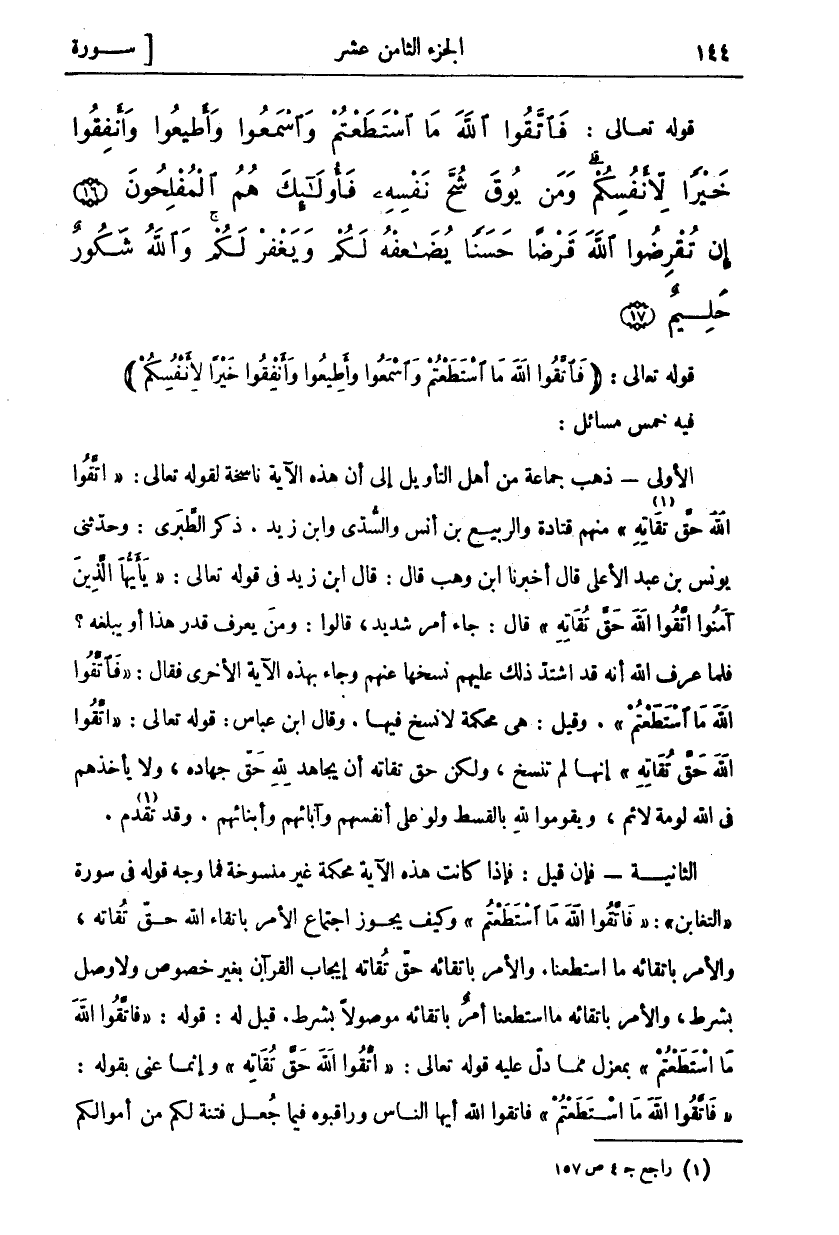 ١٤٤ الجزء الثامن عشر [ ســورة
قوله تعـالى : فَٱتَّقُوا ٱللَّهَ مَا ٱسْتَطَعْتُمْ وَٱسْمَعُوا وَأَطِيعُوا وَأَنفِقُوا
خَيْرًا لِّأَنفُسِكُمْ ۗ وَمَن يُوقَ شُحَّ نَفْسِهِۦ فَأُولَـٰٓئِكَ هُمُ ٱلْمُفْلِحُونَ ⟨١٦⟩
إِن تُقْرِضُوا ٱللَّهَ قَرْضًا حَسَنًا يُضَـٰعِفْهُ لَكُمْ وَيَغْفِرْ لَكُمْ ۚ وَٱللَّهُ شَكُورٌ
حَلِـيمٌ ⟨١٧⟩
قوله تعالى : ﴿ فَٱتَّقُوا ٱللهَ مَا ٱسْتَطَعْتُمْ وَٱسْمَعُوا وأَطِيعُوا وَأَنْفِقُوا خَيْرًا لِأَنْفُسِكُمْ ﴾
فيه خمس مسائل :
الأولى — ذهب جماعة من أهل التأويل إلى أن هذه الآية ناسخة لقوله تعالى : « اتَّقُوا
اللهَ حَقَّ تُقَاتِهِ » (١) منهم قتادة والربيع بن أنس والسُّدّى وابن زيد . ذكر الطَّبَرى : وحدّثنى
يونس بن عبد الأعلى قال أخبرنا ابن وهب قال : قال ابن زيد فى قوله تعالى : « يَأَيُّهَا الَّذِينَ
آمَنُوا اتَّقُوا اللهَ حَقَّ تُقَاتِهِ » قال : جاء أمر شديد ، قالوا : ومَن يعرف قدر هذا أو يبلغه ؟
فلما عرف الله أنه قد اشتدّ ذلك عليهم نسخها عنهم وجاء بهذه الآية الأخرى فقال : « فَٱتَّقُوا
اللهَ مَا ٱسْتَطَعْتُمْ » . وقيل : هى محكمة لا نسخ فيهـا . وقال ابن عباس : قوله تعالى : « اتَّقُوا
اللهَ حَقَّ تُقَاتِهِ » إنهـا لم تنسخ ، ولكن حق تقاته أن يجاهد لِلهِ حَقّ جهاده ، ولا يأخذهم
فى الله لومة لائم ، ويقوموا لله بالقسط ولو على أنفسهم وآبائهم وأبنائهم . وقد تقدّم (١) .
الثانيـــة — فإن قيل : فإذا كانت هذه الآية محكمة غير منسوخة فما وجه قوله فى سورة
«التغابن» : « فَاتَّقُوا اللهَ مَا ٱسْتَطَعْتُم » وكيف يجـوز اجتماع الأمر باتقاء الله حـقّ تُقاته ،
والأمر باتقائه ما استطعنا . والأمر باتقائه حقّ تُقاته إيجاب القرآن بغير خصوص ولا وصل
بشرط ، والأمر باتقائه ما استطعنا أمرٌ باتقائه موصولاً بشرط . قيل له : قوله : « فاتَّقُوا اللهَ
مَا اسْتَطَعْتُمْ » بمعزل ممـا دلّ عليه قوله تعالى : « اتَّقُوا اللهَ حَقَّ تُقَاتِهِ » وإنمـا عنى بقوله :
« فَاتَّقُوا اللهَ مَا اسْـتَطَعْتُمْ » فاتقوا الله أيها النـاس وراقبوه فيما جُعـل فتنة لكم من أموالكم
(١) راجع جـ ٤ ص ١٥٧